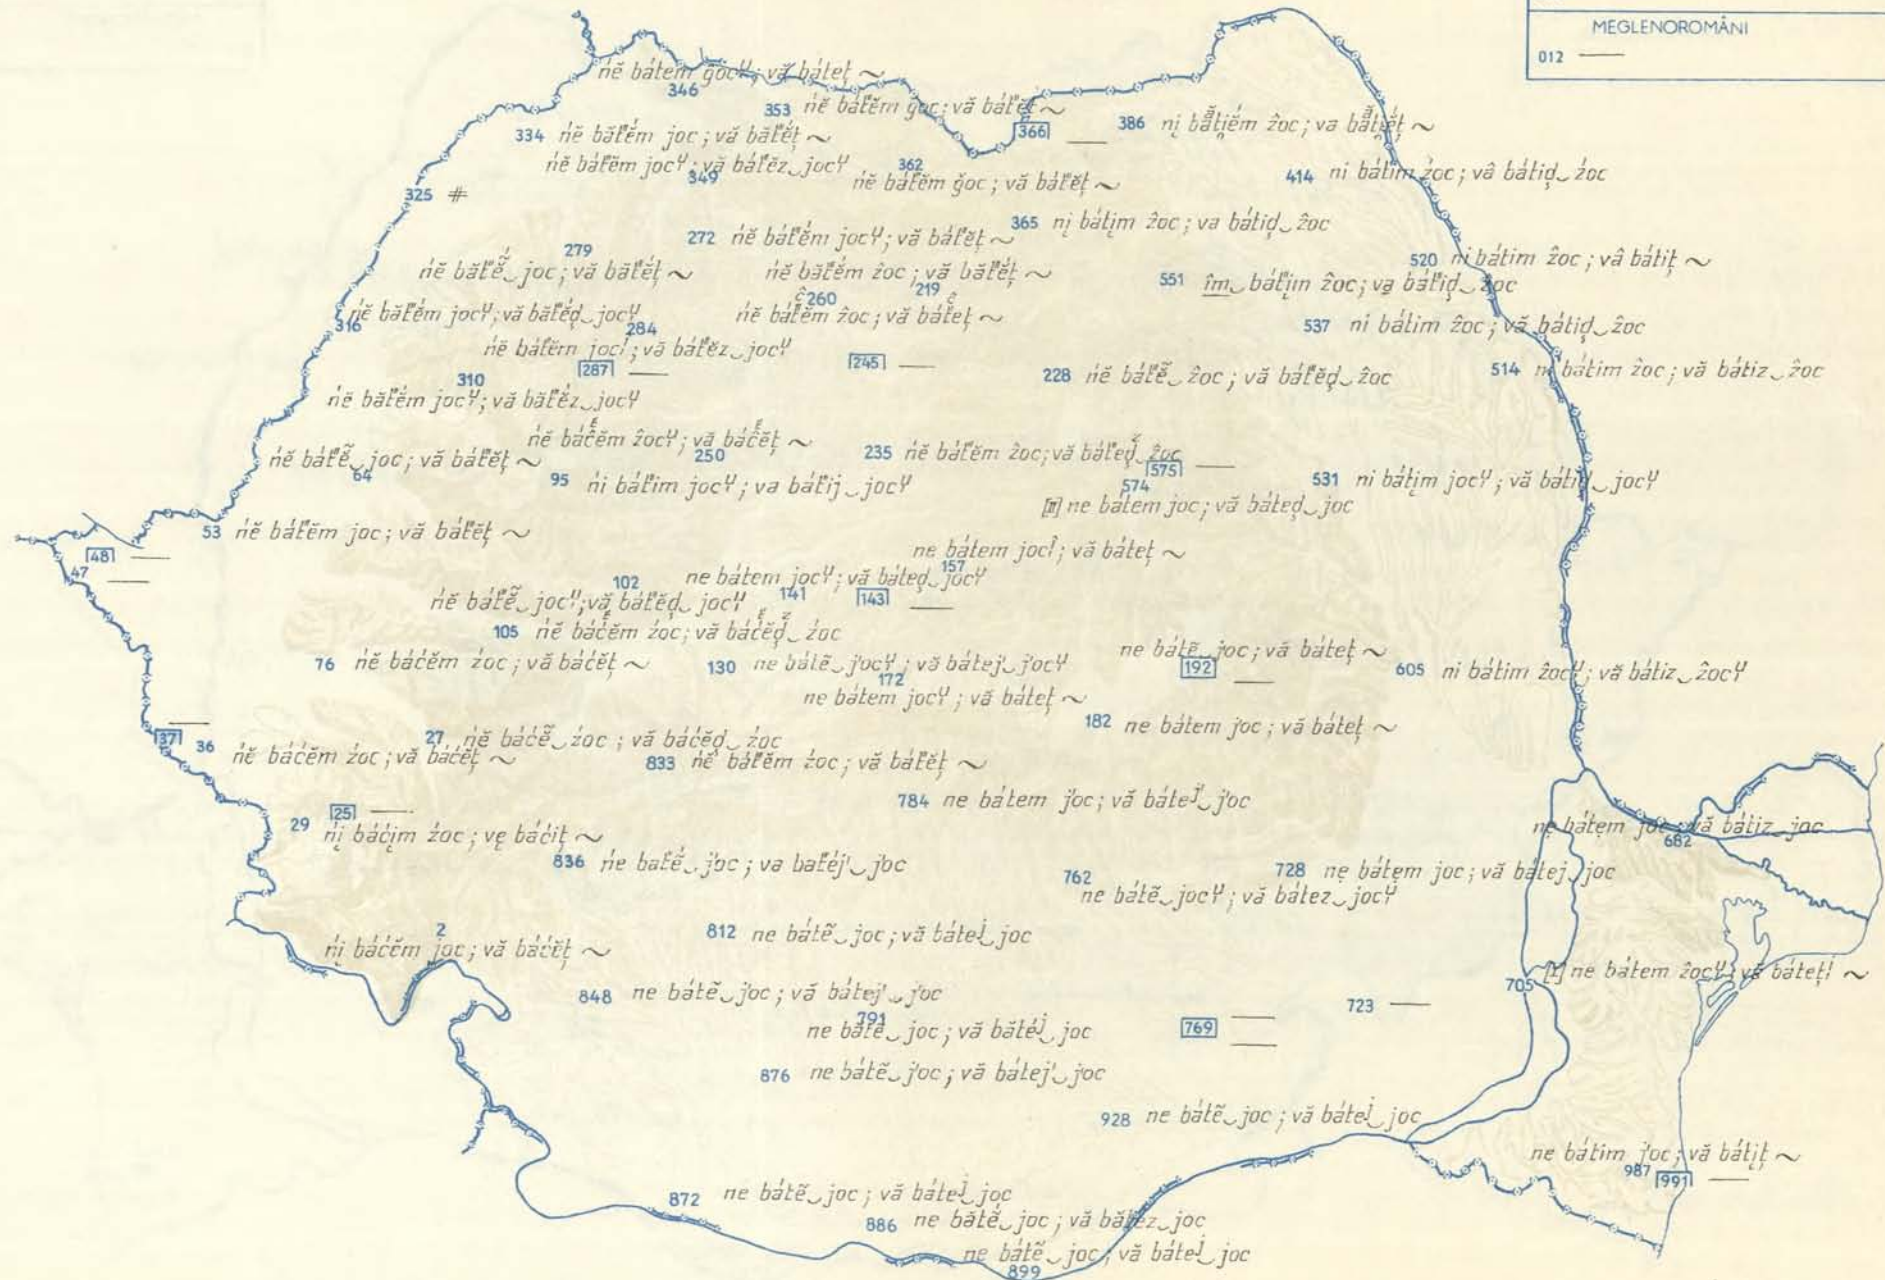 MEGLENOROMÂNI
012 —
346 ńĕ bátem ǧocᶣ; vă báteț ~
353 ńĕ bát́ĕm ǧoc; vă bát́ĕț ~
334 ńĕ băt́ĕ́m joc; vă băt́ĕ́ț ~
366 —
386
349 ńĕ bát́ĕm jocᶣ; vă bát́ĕz‿jocᶣ
362 ńĕ bát́ĕm ǧoc; vă bát́ĕț ~
414 ni bátim źoc; vâ bátid̦‿źoc
325 #
365 ni̦ báti̦m ẑoc; va bátid̦‿ẑoc
272 ńĕ bát́ĕm jocᶣ; vă bát́ĕț ~
279 joc; vă băt́ĕ́ț ~
219 ńĕ băt́ĕ́m ẑoc; vă băt́ĕ́ț ~
520 ni bátim ẑoc; vâ bátiț ~
551 îm‿bát́im ẑoc; va bát́id̦‿ẑoc
316 ńĕ băt́ĕ́m jocᶣ; vă băt́ĕ́d̦‿jocᶣ
260 ńĕ bát́ĕm ẑoc; vă bát́eț ~
537 ni bátim ẑoc; vă bátid̦‿ẑoc
284 ńĕ bát́ĕm joc; vă bát́ĕz‿jocᶣ
287 —
245 —
228 ńĕ bát́ẽ‿ẑoc; vă bát́ĕd̦‿ẑoc
514 ni bátim ẑoc; vă bátiz‿ẑoc
310 ńĕ băt́ĕ́m jocᶣ; vă băt́ĕ́z‿jocᶣ
250 ńĕ báćĕm ẑocᶣ; vă báćĕț ~
64 ńĕ bát́ẽ‿joc; vă bát́ĕț ~
235 ńĕ bát́ĕm ẑoc; vă bát́ed̦‿ẑoc
575 —
95 ńi bát́im jocᶣ; va bát́ij‿jocᶣ
531 ni báti̦m jocᶣ; vă bátid̦‿jocᶣ
574 ne bátem joc; vă báted̦‿joc
53 ńĕ bát́ĕm joc; vă bát́ĕț ~
48 —
47 —
157 ne bátem joc; vă báteț ~
141 ne bátem jocᶣ; vă báted̦‿jocᶣ
102 ńĕ bát́ẽ‿jocᶣ; vă bát́ĕd̦‿jocᶣ
143 —
105 ńĕ báćĕm źoc; vă báćĕd̦‿źoc
76 ńĕ báćĕm źoc; vă báćĕț ~
130 ne bátẽ‿j́ocᶣ; vă bátej́‿j́ocᶣ
ne bátẽ‿joc; vă báteț ~
192 —
605 ni bátim ẑocᶣ; vă bátiz‿ẑocᶣ
172 ne bátem jocᶣ; vă báteț ~
182 ne bátem j́oc; vă báteț ~
37 —
36 ńĕ báćĕm źoc; vă báćĕț ~
27 ńĕ báćẽ‿źoc; vă báćĕd̦‿źoc
833 ńĕ bát́ĕm źoc; vă bát́ĕț ~
784 ne bátem j́oc; vă bátej́‿j́oc
25 —
29 ńi̦ báći̦m źoc; vę báćiț ~
682 nę bátęm joc; vă bátiz‿joc
836 ńe bat́ẽ́‿j́oc; va bat́éj́‿j́oc
728 nę bátęm joc; vă bátej‿joc
762 ne bátẽ‿jocᶣ; vă bátez‿jocᶣ
812 ne bátẽ‿joc; vă bátej‿joc
2 ńi̦ báćĕm joc; vă báćĕț ~
705 ne bátem ẑocᶣ; vă báteț ~
848 ne bátẽ‿j́oc; vă bátej́‿j́oc
723 —
791 ne bătẽ́‿joc; vă bătéj‿joc
769 —
—
876 ne bátẽ‿j́oc; vă bátej́‿j́oc
928 ne bátẽ‿joc; vă bátej‿joc
987 ne bátim j́oc; vă báti̦ț ~
991 —
872 ne bátẽ‿joc; vă bátej‿joc
886 ne bătẽ́‿joc; vă bătéz‿joc
899 ne bátẽ‿joc; vă bátej‿joc